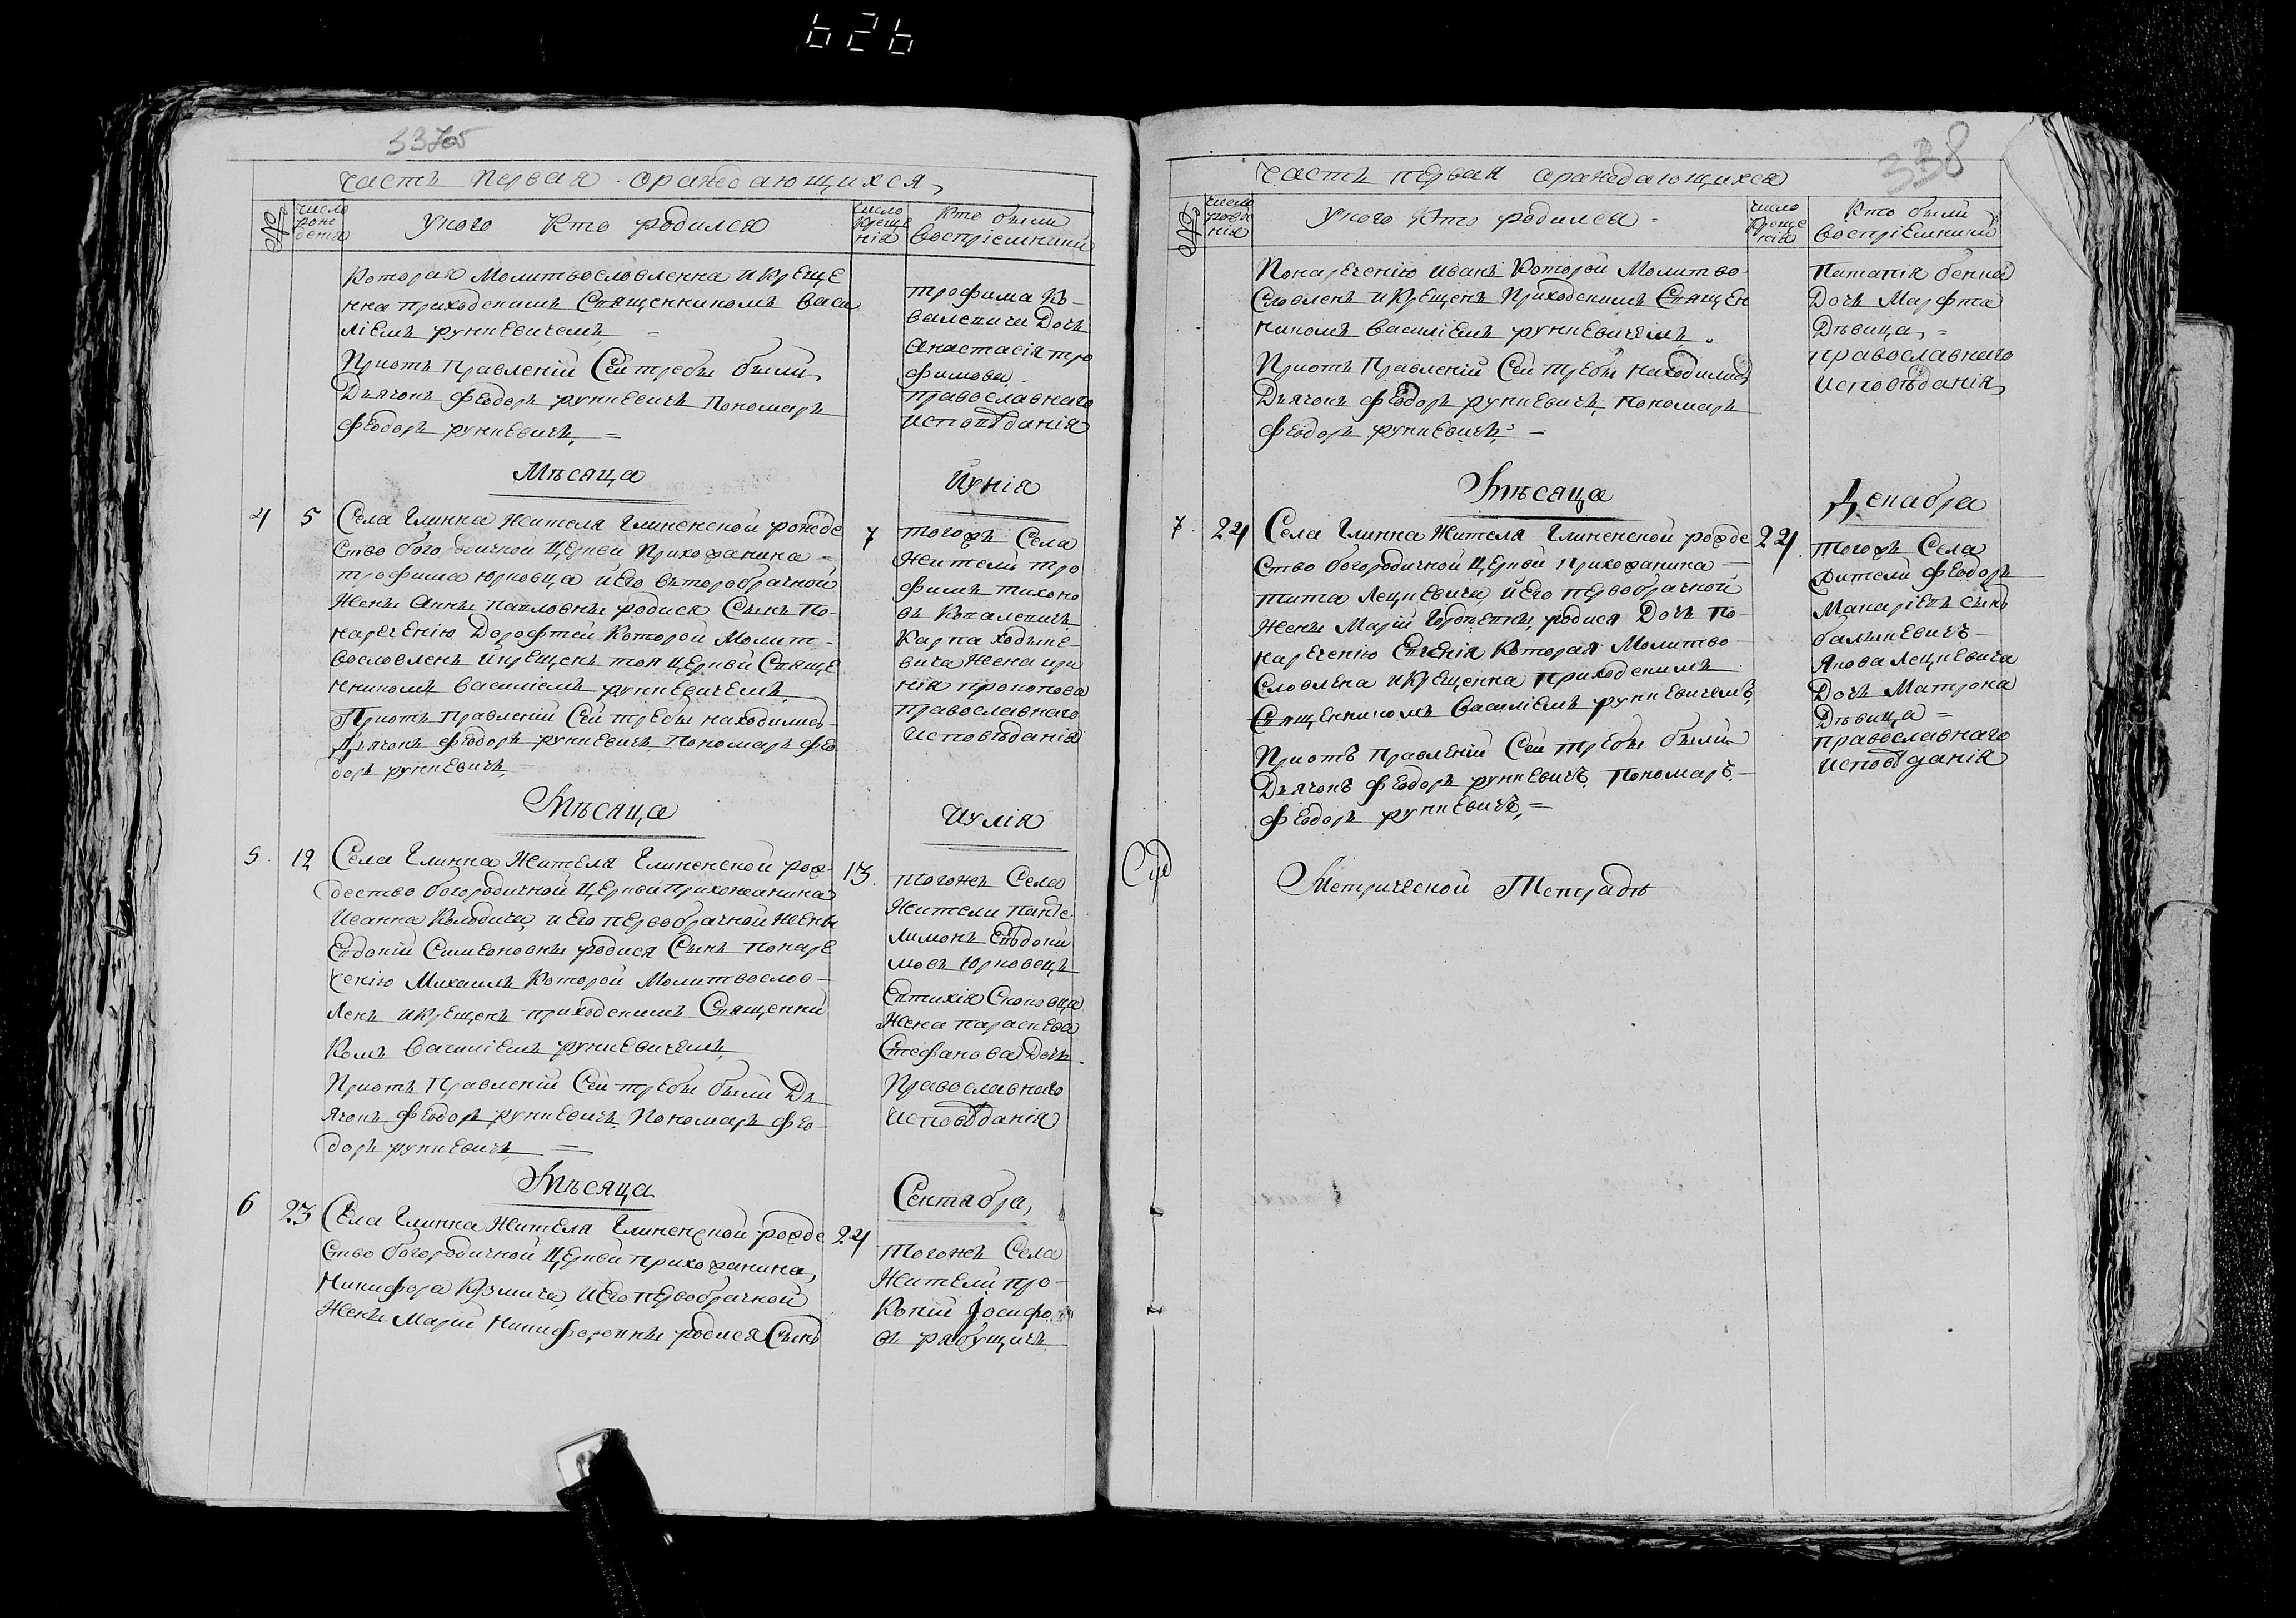 626
337об
Часть перваяораждающихся,
№
число рожденія
Уного Кто родился
число крещенія
Кто были воспріемники
Которая Молитвословленна и Креще
нна приходскимъ Священникомъ Васи
ліемъ рункевичемъ, =
Приотъ Правленіи Сей требы были
Дьячокъ Феодоръ рункевичъ Пономаръ
Феодоръ рункевичъ, =
трофима Ко-
валевича Дочь
Анастасія тро
фимова
православнаго
исповѣданія
Мѣсяца
Иунія
4
5
Села Глинка Жителя Глиненской рожде
ство богородичной Церкви Прихожанина =
трофима Юрковца и Его второбрачной
Жены Анны павловны родися Сынъ По-
нареченію Дорофтей Которой Молит-
вословленъ и крещенъ тоя Церкви Свяще
нникомъ Василіемъ рункевичемъ
Приотъ Правленіи Сей требы находились
Дьячокъ Феодоръ рункевичъ Пономаръ Фео
доръ рункевичъ, =
7
тогожъ Села
Жители тро
фимъ тихоно
въ Ковалевичъ
Карпа Ходыке-
вича Жена ири
нія прокопова
православнаго
исповѣданія
Мѣсяца
Иулія
5.
12
Села Глинка Жителя Глиненской рож-
дество богородичной Церкви прихожанина
Иванна Колодича, и Его первобрачной Жены
Евдокіи Симеоновны родися Сынъ понаре
ченію Михаилъ Которой Молитвослов-
ленъ и Крещенъ приходскимъ Священни
комъ Василіемъ рункевичемъ,
Приотъ Правленіи Сей требы были Дь
ячокъ Феодоръ рункевичъ, Пономаръ Фео-
доръ рункевичъ, =
13.
тогожъ Села
Жители панте
лимонъ Евдоки
мовъ Юрковецъ
Евтихія
Жена параскева
Стефанова Дочь
Православнаго
исповѣданія
Мѣсяца
Сентабра,
6
23
Села Глинка Жителя Глиненской рожде
ство богородичной Церкви прихожанина,
Никифора Кузмича, и Его первобрачной
Жены Маріи Никифоровны родися Сынъ
24
тогожъ Села
Жители про-
копій Іосифо
въ рабущичъ
338
Часть первая ораждающихся
№
число рожденія
Уного Кто родился
число крещенія
Кто были воспріемники
Понареченію иванъ Которой Молитво-
Словленъ и Крещенъ Приходскимъ Священ
никомъ Василіемъ рункевичемъ.
Приотъ Правленіи Сей требы находились
Дьячокъ Феодоръ рункевичъ, Пономаръ
Феодоръ рункевичъ, =
Дочь Марфта
Дѣвица, =
православнаго
исповѣданія,
Мѣсяца
Декабра
7.
24
Села Глинка Жителя Глиненской рожде
ство богородичной Церкви Прихожанина =
тита Лецкевича, и Его первобрачной
Жены Маріи родися Дочь по-
нареченію Евгенія Которая Молитво
Словлена и Крещенна приходскимъ
Священникомъ Василіемъ рункевичемъ,
Приотъ правленіи Сей требы были
Дьячокъ Феодоръ рункевичъ, Пономаръ,-
Феодоръ рункевичъ, =
24.
тогожъ Села
Жители Феодоръ
Макаріевъ сынъ
балыкевичъ-
Якова Лецкевича
Дочь Матрона
Дѣвица =
православнаго
исповѣданія
Метрической Тетрадѣ